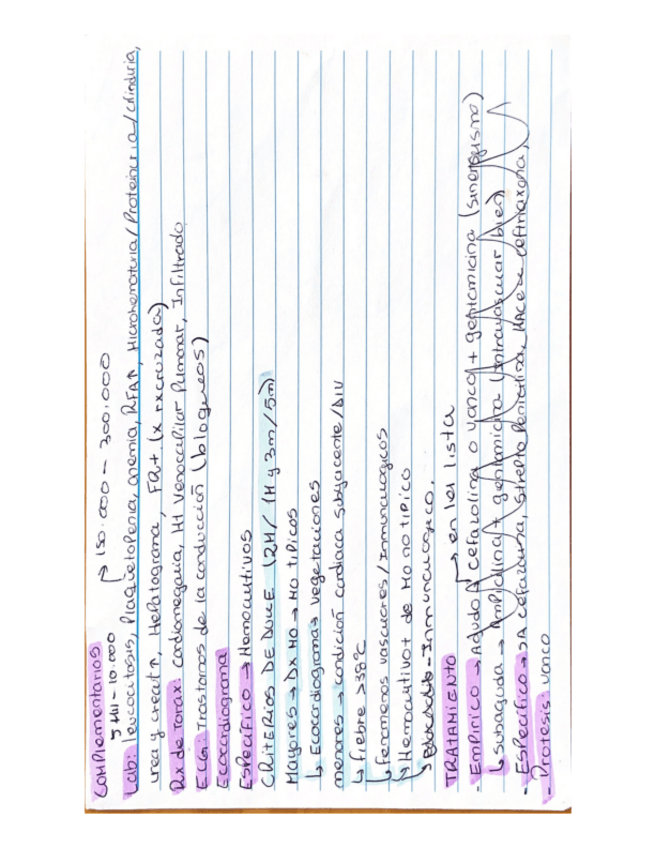 COMPlementarios
4 mil - 10.000 → 150.000 - 300.000
Lab: leucocitosis, Plaquetopenia, anemia, RFA↑, Microhematuria/Proteinuria/cilindruria,
urea y creat↑, Hepatograma, FR+ (x rxcruzada)
Rx de Torax: cardiomegalia, Ht Venocapilar Pulmonar, Infiltrado
ECG: Trastornos de la conducción (bloqueos)
Ecocardiograma
Específico → Hemocultivos
CRITERIOS DE DUKE (2M/ 1M y 3m/5m)
Mayores → Dx MO → MO tipicos
↳ Ecocardiograma → vegetaciones
menores → condición cardiaca subyacente/DIV
↳ fiebre >38°C
↳ fenomenos vasculares/Inmunologicos
↳ Hemocultivo + de MO no tipico
TRATAMIENTO → en la lista
- Empirico → Agudo → cefazolina o vanco + gentamicina (sinergismo)
↳ Subaguda → Ampicilina + gentamicina (intravascular bien)
- Específico → SA cefazolina, Strepto Penicilina, HACEK ceftriaxona,
- Protesis: vanco